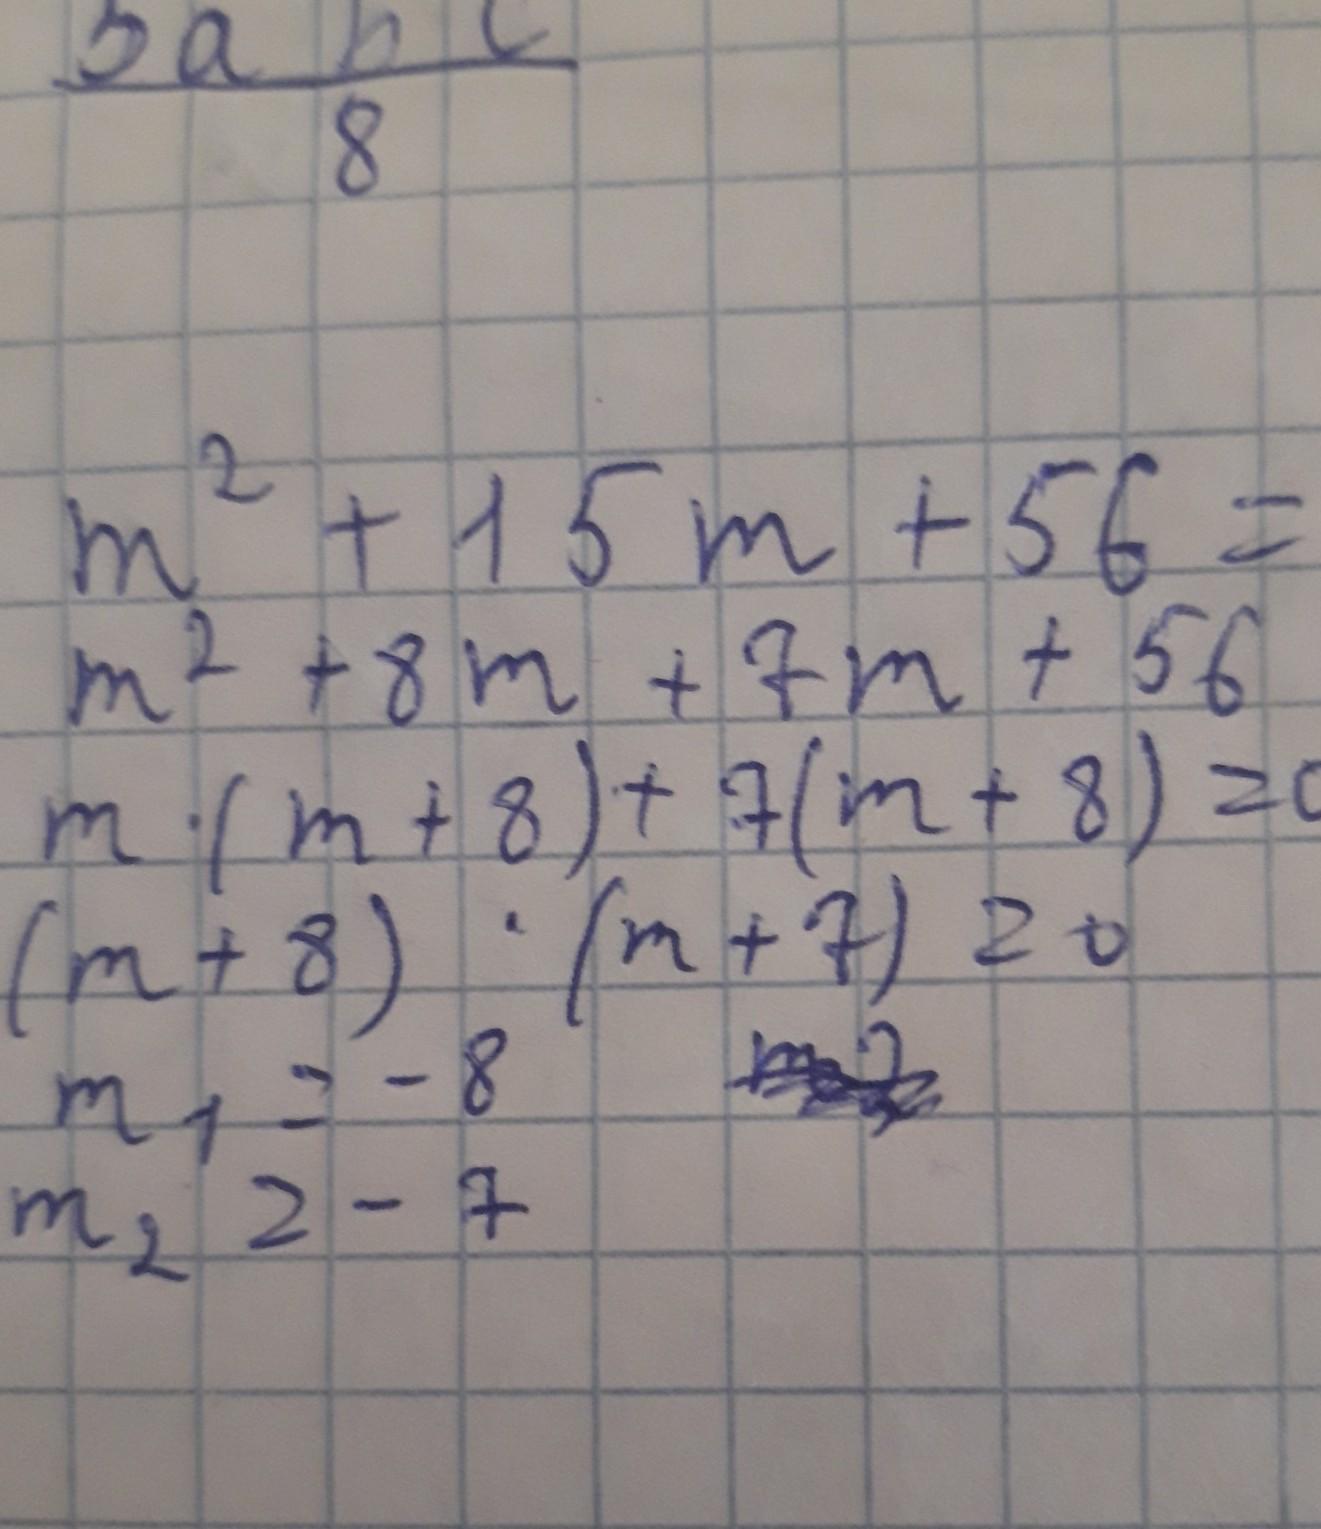 5abc
8
m² + 15m + 56 =
m² + 8m + 7m + 56
m · (m + 8) + 7(m + 8) = 0
(m + 8) · (m + 7) = 0
m₁ = - 8
m₂ = - 7